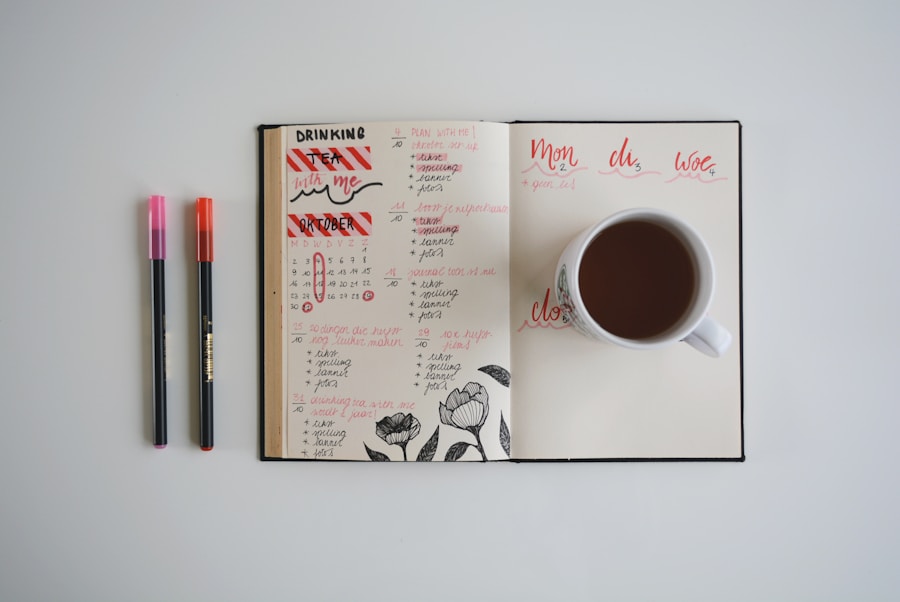 DRINKING
TEA
with me
OKTOBER
M D W D V Z Z
1
2 3 4 5 6 7 8
9 10 11 12 13 14 15
16 17 18 19 20 21 22
23 24 25 26 27 28
30
25
10
20 dingen die herfst
nog leuker maken
+ tekst
+ spelling
+ banner
+ foto's
31
10
drinkingtea with me
wordt 1 jaar!
+ tekst
+ spelling
+ banner
+ foto's
4
10
PLAN WITH ME!
oktober set up
+ tekst
+ spelling
+ banner
+ foto's
11
10
boost je
+ tekst
+ spelling
+ banner
+ foto's
18
10
journal
+ tekst
+ spelling
+ banner
+ foto's
29
10
10x herfst
+ tekst
+ spelling
+ banner
+ foto's
Mon 2 di 3 woe 4
+ geen
do